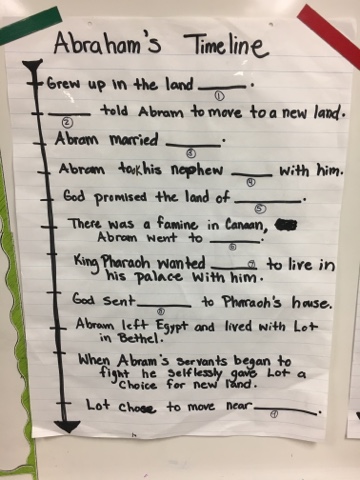 Abraham's Timeline
Grew up in the land ____.
①
____ told Abram to move to a new land.
②
Abram married ____.
③
Abram took his nephew ____ with him.
④
God promised the land of ____.
⑤
There was a famine in Canaan,
Abram went to ____.
⑥
King Pharaoh wanted ____ ⑦ to live in
his palace with him.
God sent ____ to Pharaoh's house.
⑧
Abram left Egypt and lived with Lot
in Bethel.
When Abram's servants began to
fight he selflessly gave Lot a
choice for new land.
Lot chose to move near ____.
⑨